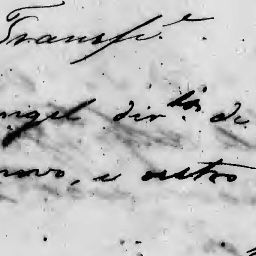 Transfe.
ngel dir.tor de
novo, e outro